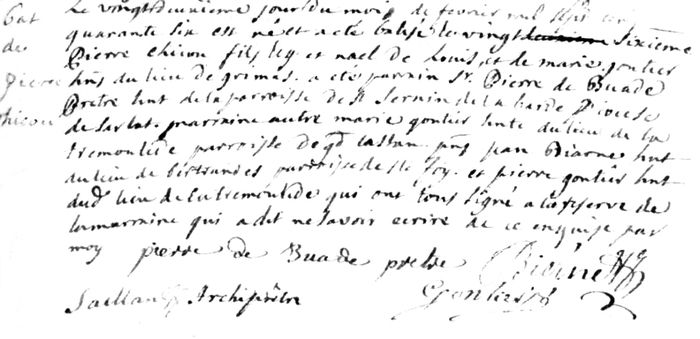 Bat
de
pierre
chicou
Le vingt deuxième jour du mois de fevrier mil sept cens
quarante six est né et a eté batisé le vingt sixième
Pierre chicou fils leg. et nael de Louis et de marie gontier
hñs du lieu de grimas. a eté parrain Sr. Pierre de Buade
Pretre hñt de la parroisse de St Sernin de la barde Diocese
de Sarlat. marraine autre marie gontier hñte du lieu de la
tremoulide parroisse de qd pñs jean hñt
du lieu de bertrandes parroisse de ste foy. et pierre gontier hñt
dud. lieu de la tremoulide qui ont tous signé a la reserve de
la marraine qui a dit ne savoir ecrire de ce enquise par
moy pierre de Buade pretre
Archipretre gontier